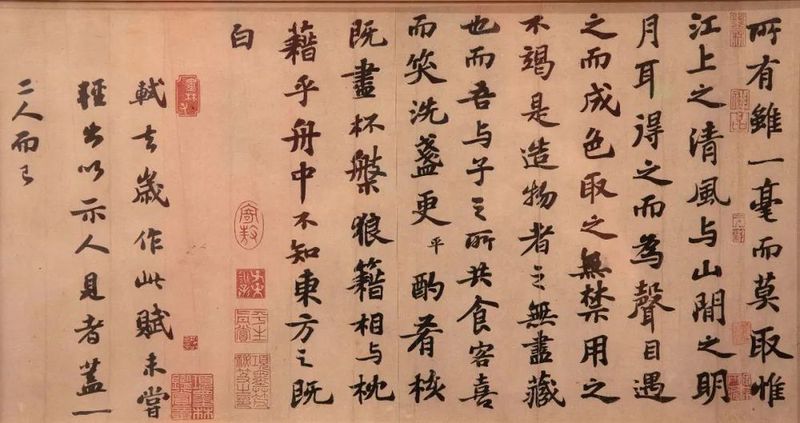 所有雖一毫而莫取惟
江上之清風与山間之明
月耳得之而為聲目遇
之而成色取之無禁用之
不竭是造物者之無盡藏
也而吾与子之所共食客喜
而笑洗盞更平酌肴核
既盡杯槃狼籍相与枕
藉乎舟中不知東方之既
白
軾去歲作此賦未嘗
輕出以示人見者蓋一
二人而已